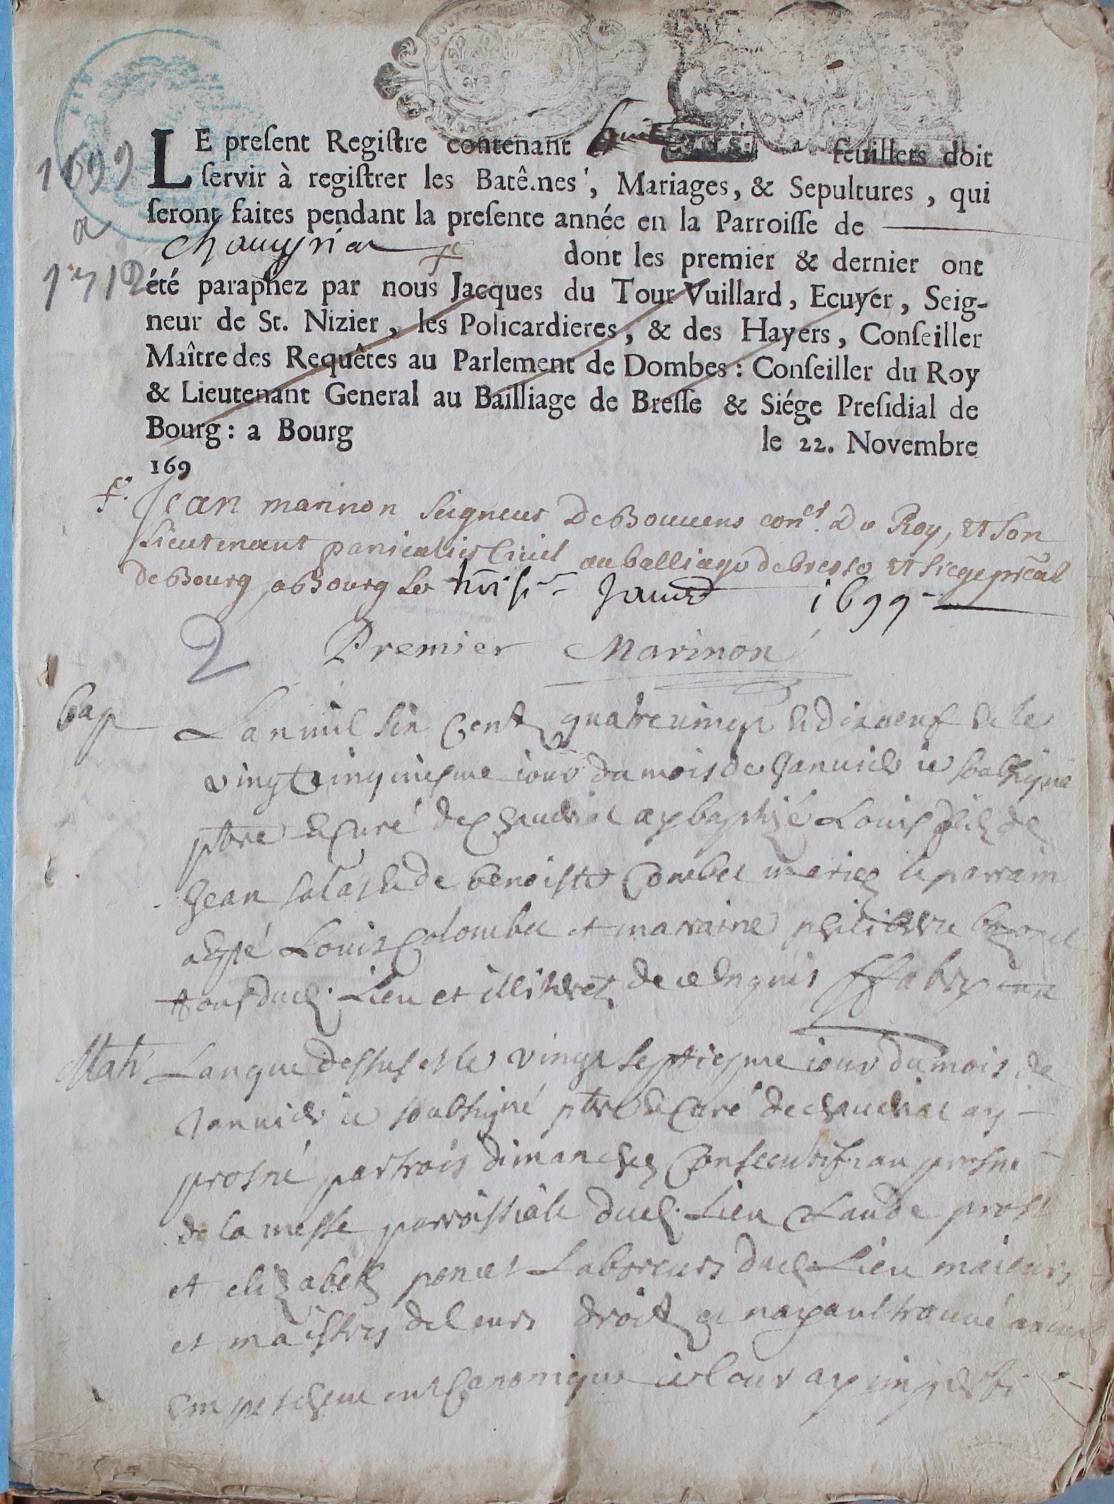 1699
a
1712
LE present Registre contenant huit feuillets doit
servir à registrer les Batê.nes', Mariages, & Sepultures, qui
seront faites pendant la presente année en la Parroisse de
dont les premier & dernier ont
été paraphez par nous Jacques du Tour Vuillard, Ecuyer, Seig-
neur de St. Nizier, les Policardieres, & des Hayers, Conseiller
Maître des Requêtes au Parlement de Dombes: Conseiller du Roy
& Lieutenant General au Bailliage de Bresse & Siége Presidial de
Bourg: a Bourg le 22. Novembre
169
Jean marinon Seigneur De Bouuens con.er Du Roy, et son
Lieutenant particulier Ciuil au balliage de bresse et siege
de Bourg, a Bourg Le 1699
2 Premier Marinon
bap
Lan mil six cent quatre uingt et dixneuf et le
vingt cinquiesme iour du mois de Januier ie soubsigné
ptre et Curé de chaudriat ay baptizé Louis filz de
Jean et de benoiste Combet mariez le parrain
a esté Louis Colombet et marraine
tous dud. Lieu et illitterez de ce Enquis
Lan que dessus et le vingt septiesme iour du mois de
Januier ie soubsigné ptre et Curé de chaudriat ay
prosné par trois dimanches Consecutifs au prosne
de la messe parroissiale dud. Lieu Claude prost
et elizabeth Laboreurs dud. Lieu maieurs
et maistres de leurs droitz et nayant trouué aucun
Empeschement Canonique ie leur ay